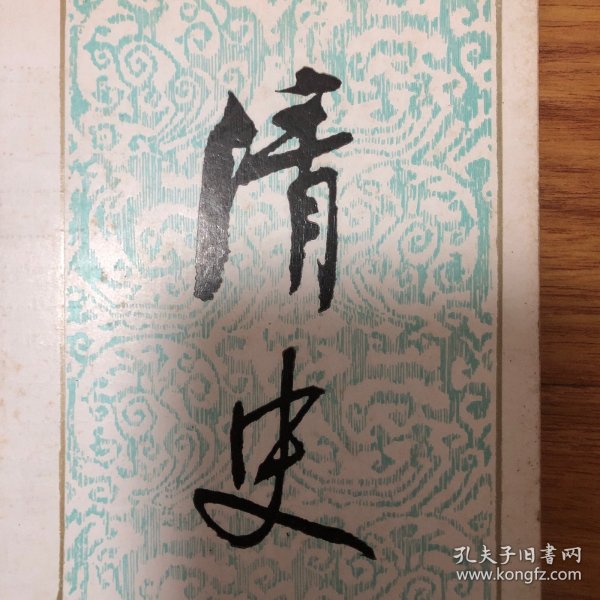 情
史
孔夫子旧书网
www.kongfz.com